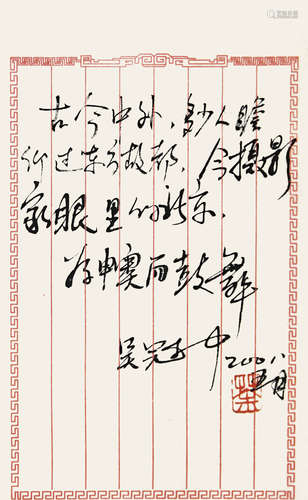 古今中外，多少人瞻
仰过东方故都，今摄影
家眼里的北京，
为申奥而鼓舞
吴冠中 2001.
五月